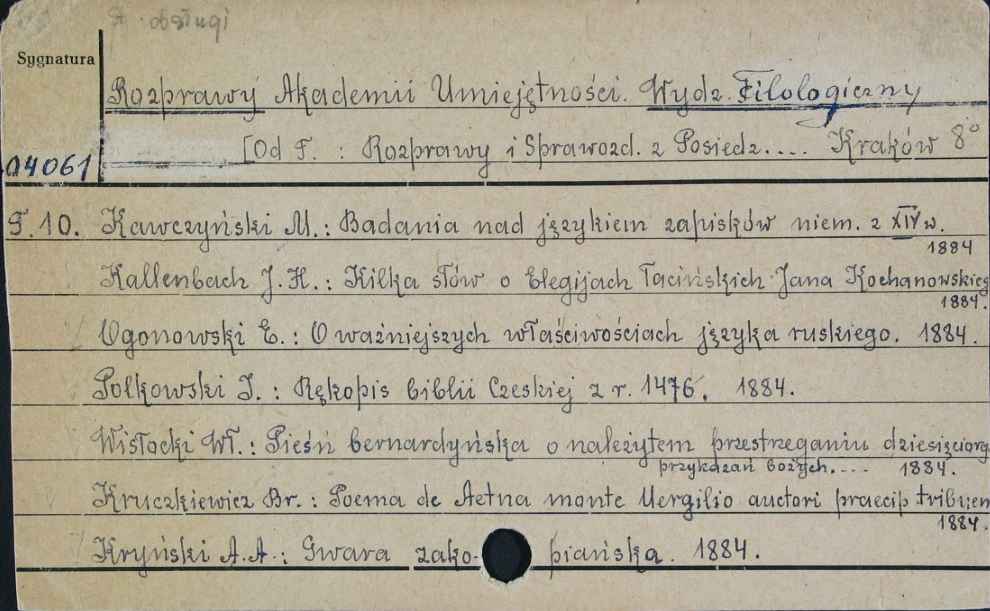 obsługi
Sygnatura
Rozprawy Akademii Umiejętności. Wydz. Filologiczny
[Od T. : Rozprawy i Sprawozd. z Posiedz.... Kraków 8°
04061
T. 10. Kawczyński M.: Badania nad językiem zapisków niem. z XIV w.
1884
Kallenbach J. H.: Kilka słów o Elegijach łacińskich Jana Kochanowskieg
1884.
Ogonowski E.: O ważniejszych właściwościach języka ruskiego. 1884.
Polkowski I. : Rękopis biblii Czeskiej z r. 1476. 1884.
Wisłocki Wł.: Pieśń bernardyńska o należytem przestrzeganiu dziesięciorg
przykazań bożych.... 1884.
Kruczkiewicz Br.: Poema de Aetna monte Vergilio auctori praecip tribuen
1884.
Kryński A.A.: Gwara zako- piańska. 1884.